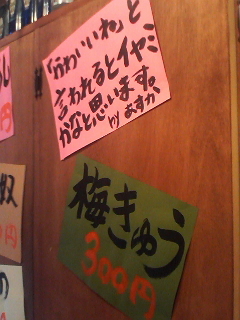 「かわいいね」と
言われるとイヤミ
かなと思います。
by あすか
梅きゅう
300円
し
円
奴
円
の